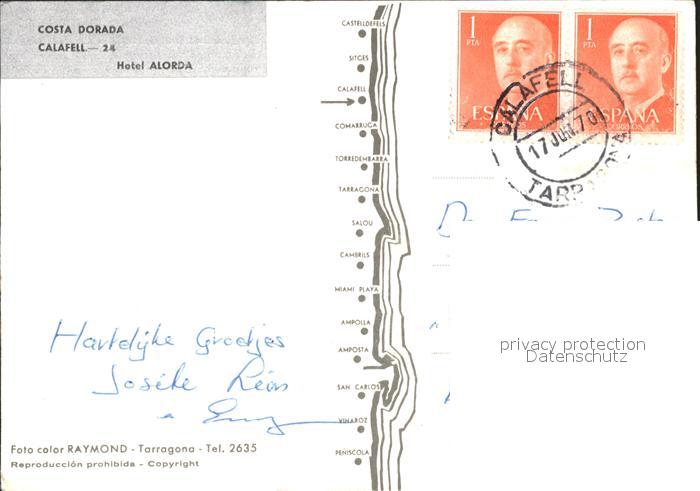 COSTA DORADA
CALAFELL.— 24
Hotel ALORDA
CASTELLDEFELS
SITGES
CALAFELL
COMARRUGA
TORREDEMBARRA
TARRAGONA
SALOU
CAMBRILS
MIAMI PLAYA
AMPOLLA
AMPOSTA
SAN CARLOS
VINAROZ
PEÑISCOLA
1 PTA
ESPAÑA
CORREOS
1 PTA
ESPAÑA
CORREOS
CALAFELL
17 JUN. 70
TARRAGONA
Hartelijke Groetjes
Foto color RAYMOND - Tarragona - Tel. 2635
Reproducción prohibida - Copyright
privacy protection
Datenschutz